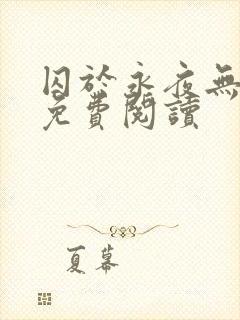 囚於永夜無
免費閱讀
夏幕